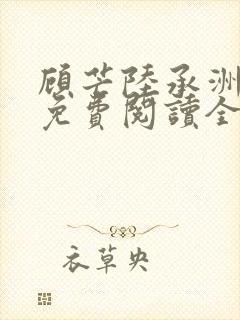 顾芒陸承洲
免費閱讀全
衣草央